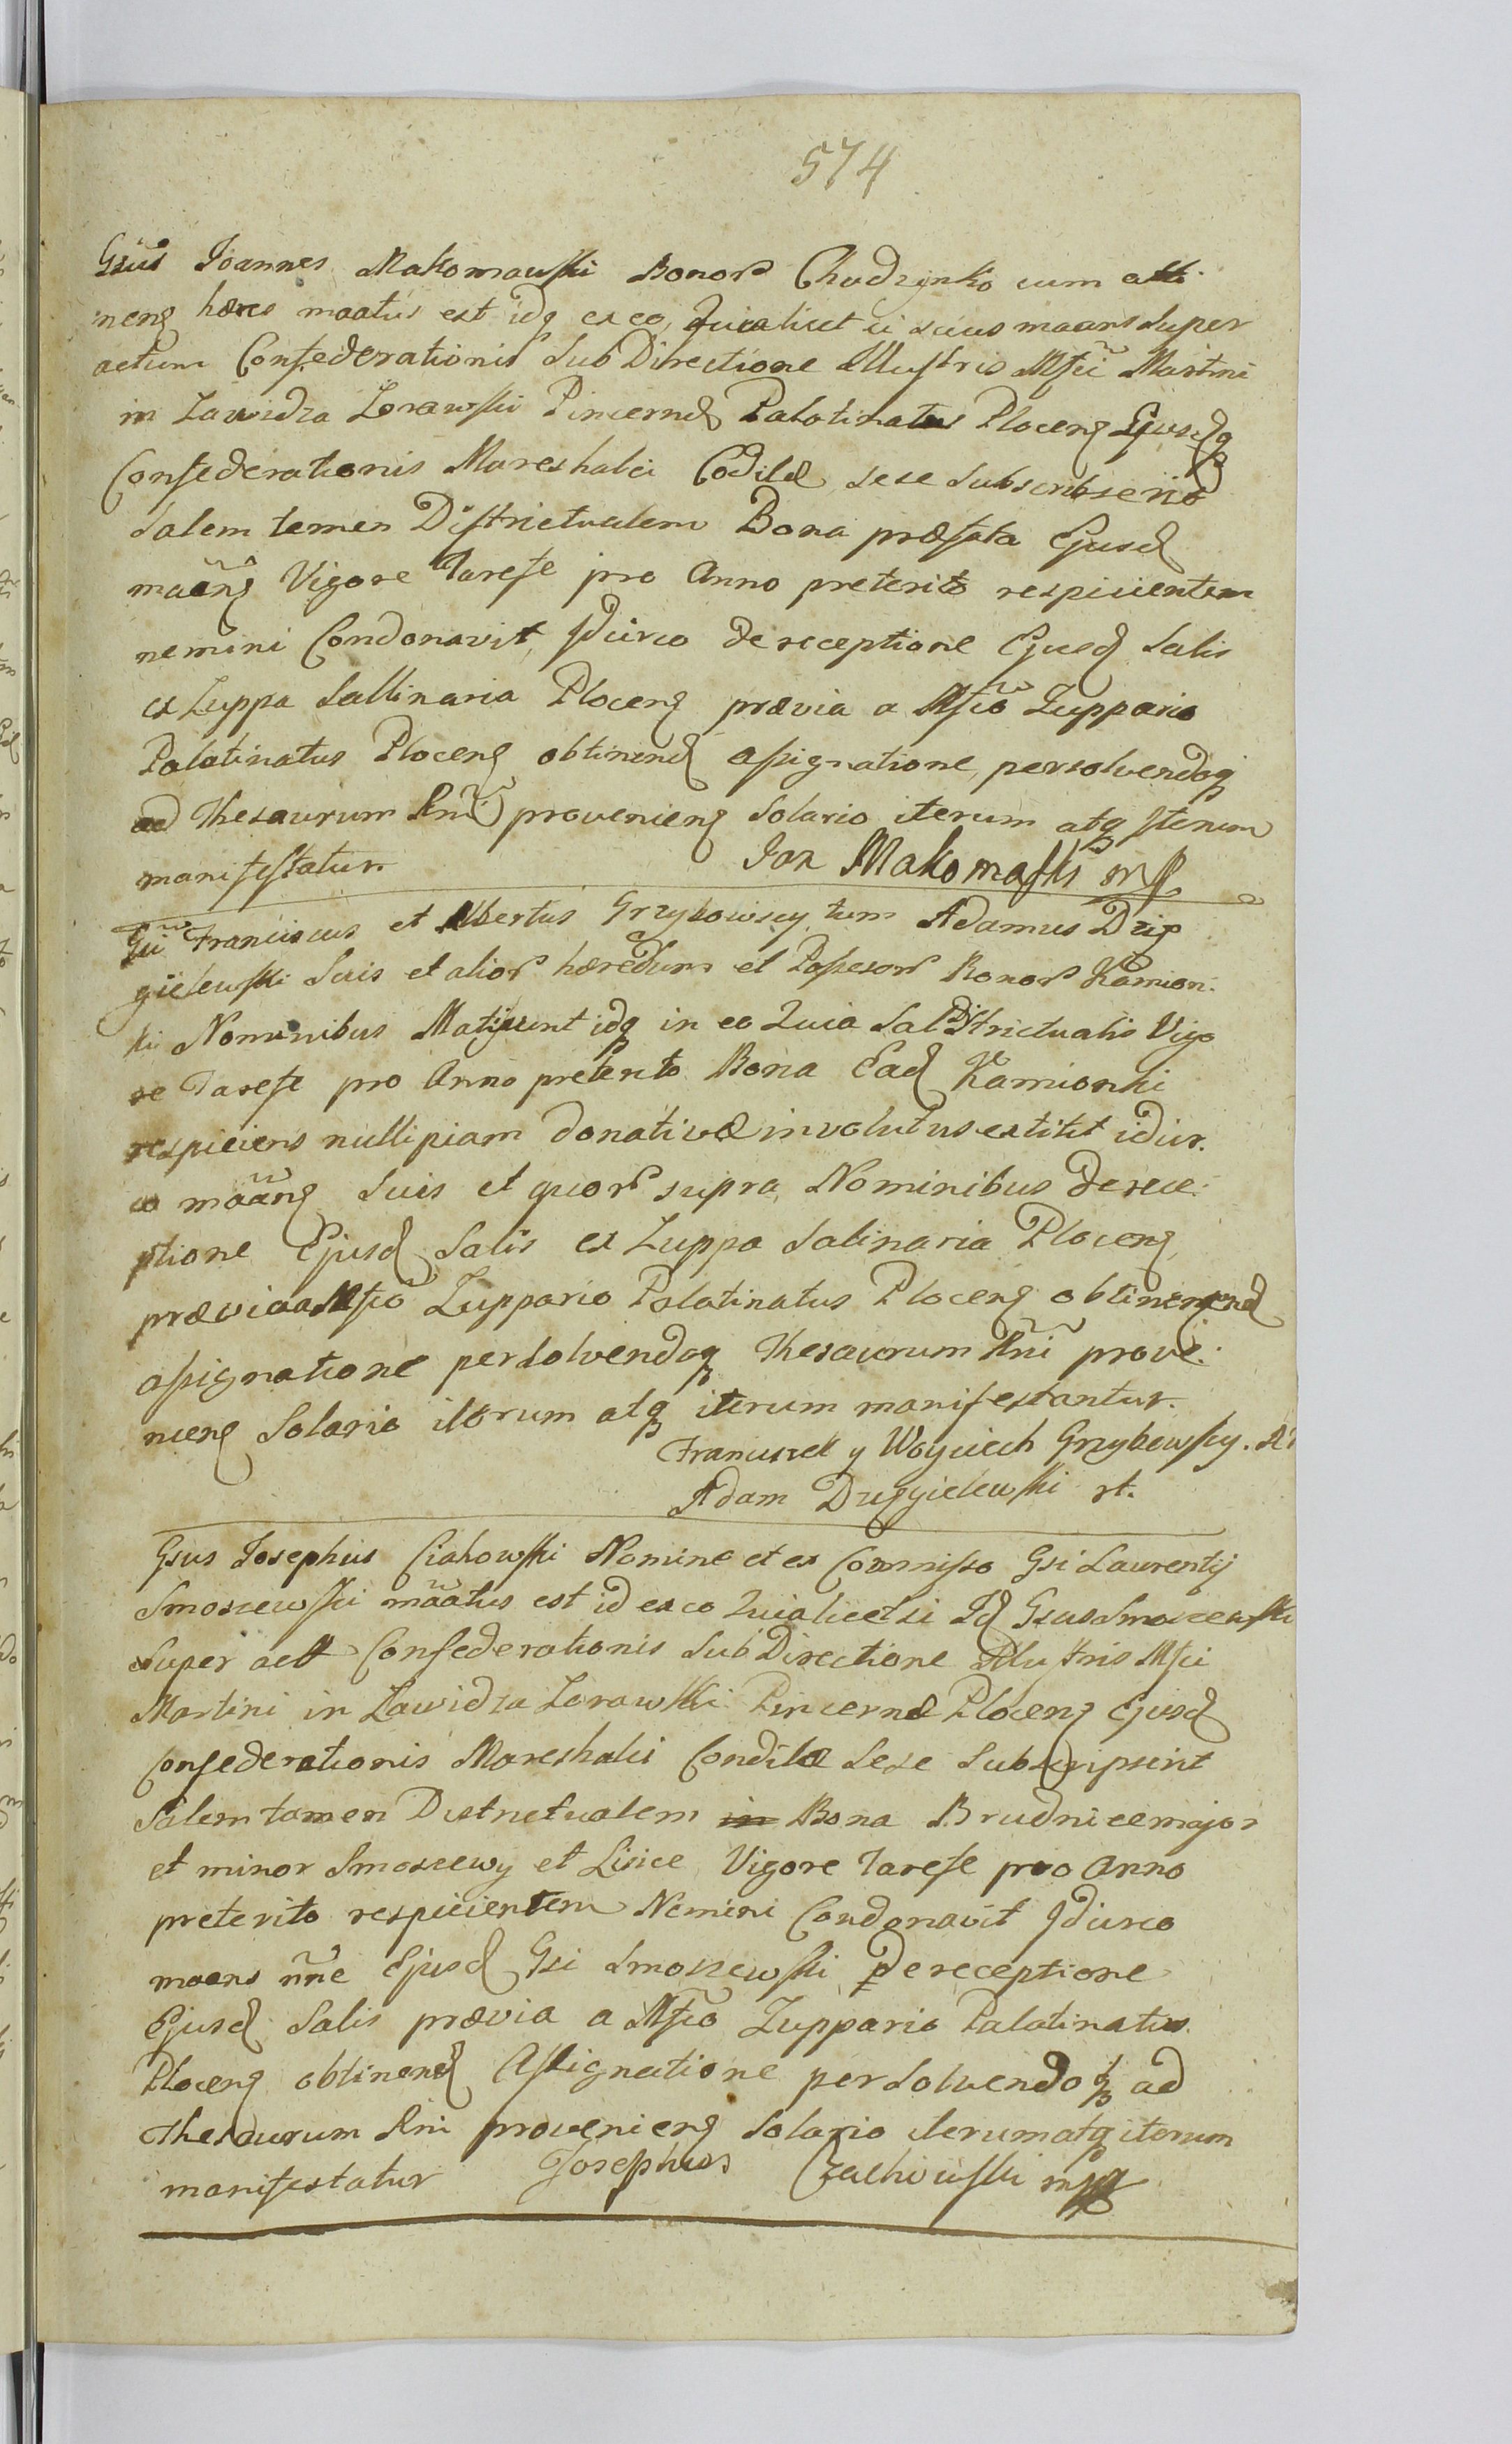 574
Gsus Joannes Makomawski Bonor Chudzynko cum atti
neng hæres maatus est idq ex eo, Quia licet is suus maans super
actum Confederationis sub Directione Illustris Mfci Martini
in Zawidza Zorawski Pincernæ Palatinatus Plocens Ejusdq
Confederationis Mareschalci Coditæ sese subscribserit
Salem tamen Districtualem Bona præfata Ejusd
maang Vigore Tareſe pro Anno preterito respicientem
nemini Condonavit, Jdcirco de receptione Ejusd Salis
ex Zuppa Sallinaria Ploceng prævia a Mfco Zuppario
Palatinatus Ploceng obtinend aſsignatione, persolvendoq
ad Thesaurum Rni provenieng Solario iterum atq iterum
manifestatur. Jan Makomaski mp
Gsi Franciscus et Albertus Grzybowscy tum Adamus Drip
gielewski Suis et alior hæredum et Poſsesor Bonor Kamion:
ki Nominibus Matijsunt idq in eo Quia Sal Districtualis Vigo
re Tareſe pro Anno preterito Bona Ead Kamionki
respiciens nullipiam donativæ involutus extitit idcir.
co maang Suis et quor supra Nominibus de rece:
ptione Ejusd Salis ex Zuppa Salinaria Ploceng,
prævia a Mfco Zuppario Palatinatus Ploceng obtinend
aſsignatione persolvendoq Thesaurum Rni prove:
nieng Solario iterum atq iterum manifestantur.
Franciszek y Woyciech Grzybowscy.
Adam Drygielewski rt.
Gsus Josephus Ciahowski Nomine et ex Commiſso Gsi Laurentij
Smoszewski maatus est id ex eo Quia licet si Jd Gsus Smoszewski
super act Confederationis sub Directione Illustris Mfci
Martini in Zawidza Zorawski Pincernæ Ploceng Ejusd
Confederationis Mareschalci Conditæ Sese Subscripserit
Salem tamen Districtualem in Bona Brudnice major
et minor Smoszewy et Lisice Vigore Tareſe pro Anno
preterito respicientem Nemini Condonavit Jdcirco
maans nne Ejusd Gsi Smoszewski de receptione
Ejusd Salis prævia a Mfco Zuppario Palatinatus
Ploceng obtinend Aſsignatione persolvendoq ad
Thesaurum Rni provenieng Solario iterum atq iterum
manifestatur Josephus Czachowski mp